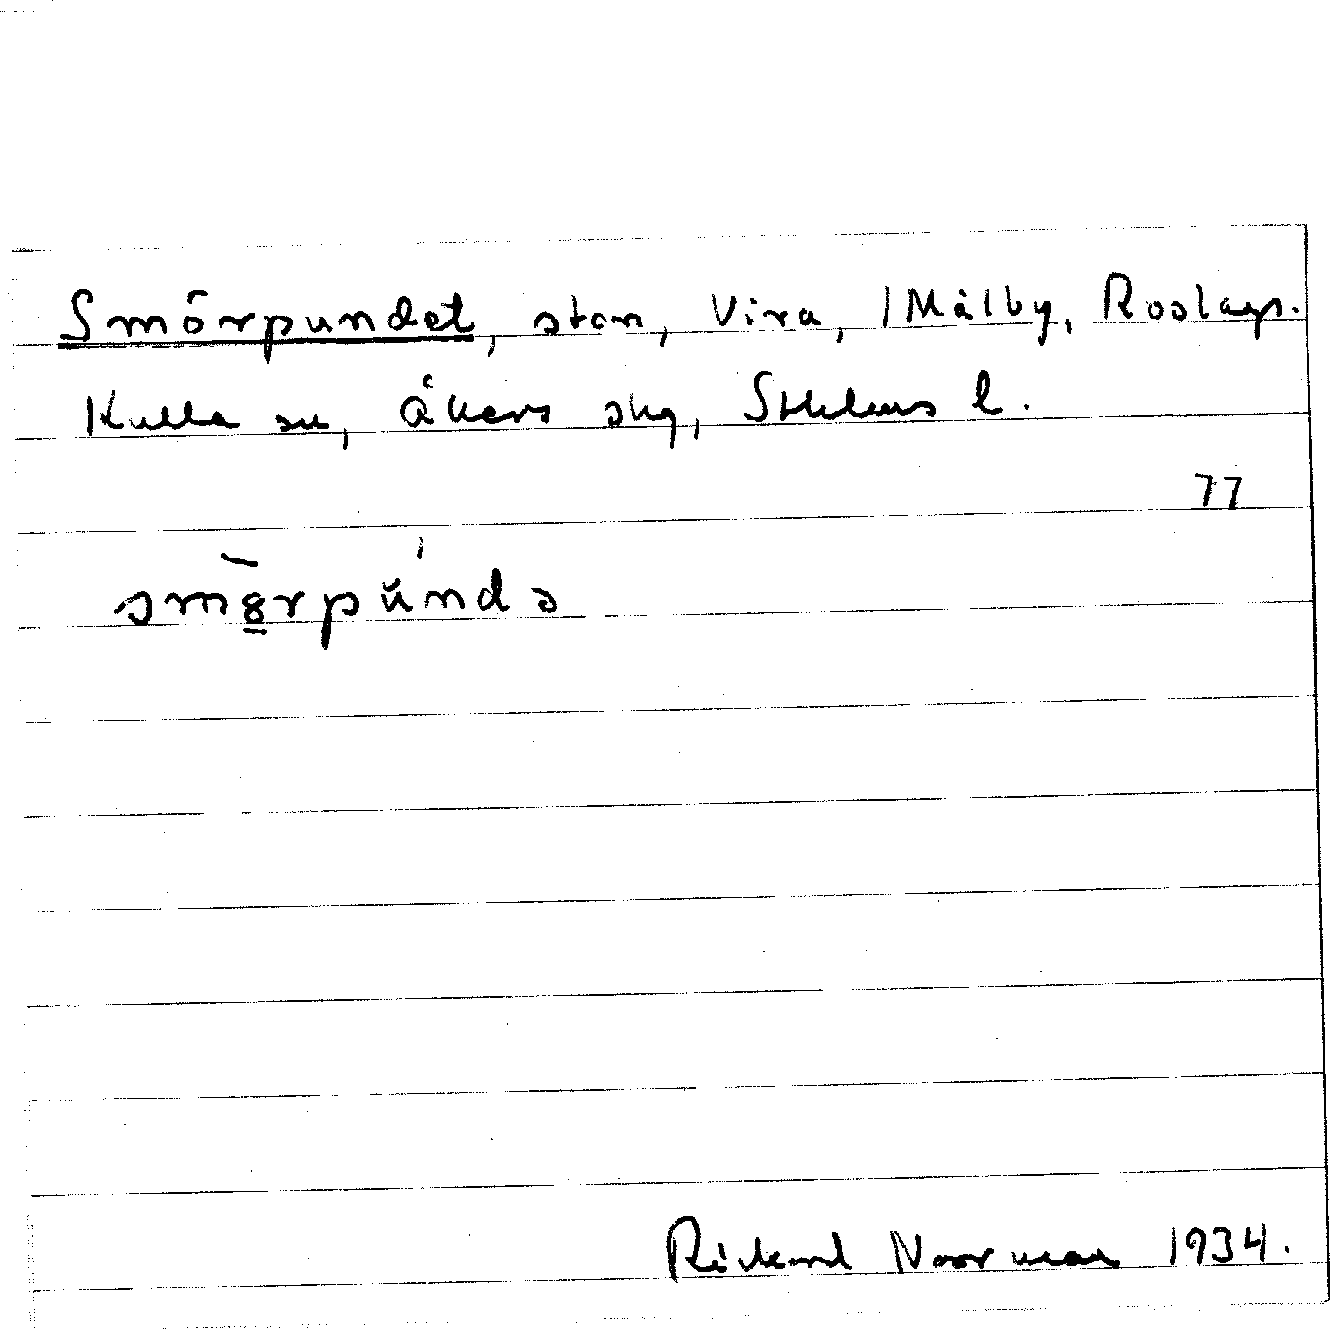 Smörpundet, sten, Vira, /Målby, Roslags.
Kulla sn, Åkers skg, Sthlms l.
77
smö̱rpŭndə
Rickard Noorman 1934.